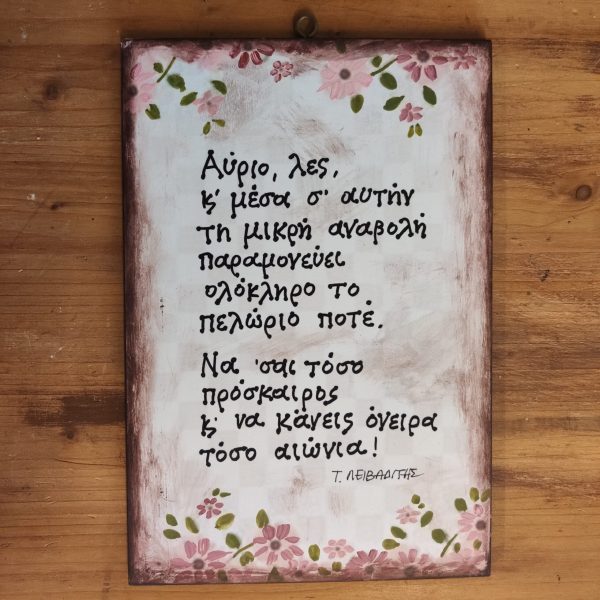 Αύριο, λες,
κ' μέσα σ' αυτήν
τη μικρή αναβολή
παραμονεύει
ολόκληρο το
πελώριο ποτέ.
Να 'σαι τόσο
πρόσκαιρος
κ' να κάνεις όνειρα
τόσο αιώνια!
Τ. ΛΕΙΒΑΔΙΤΗΣ